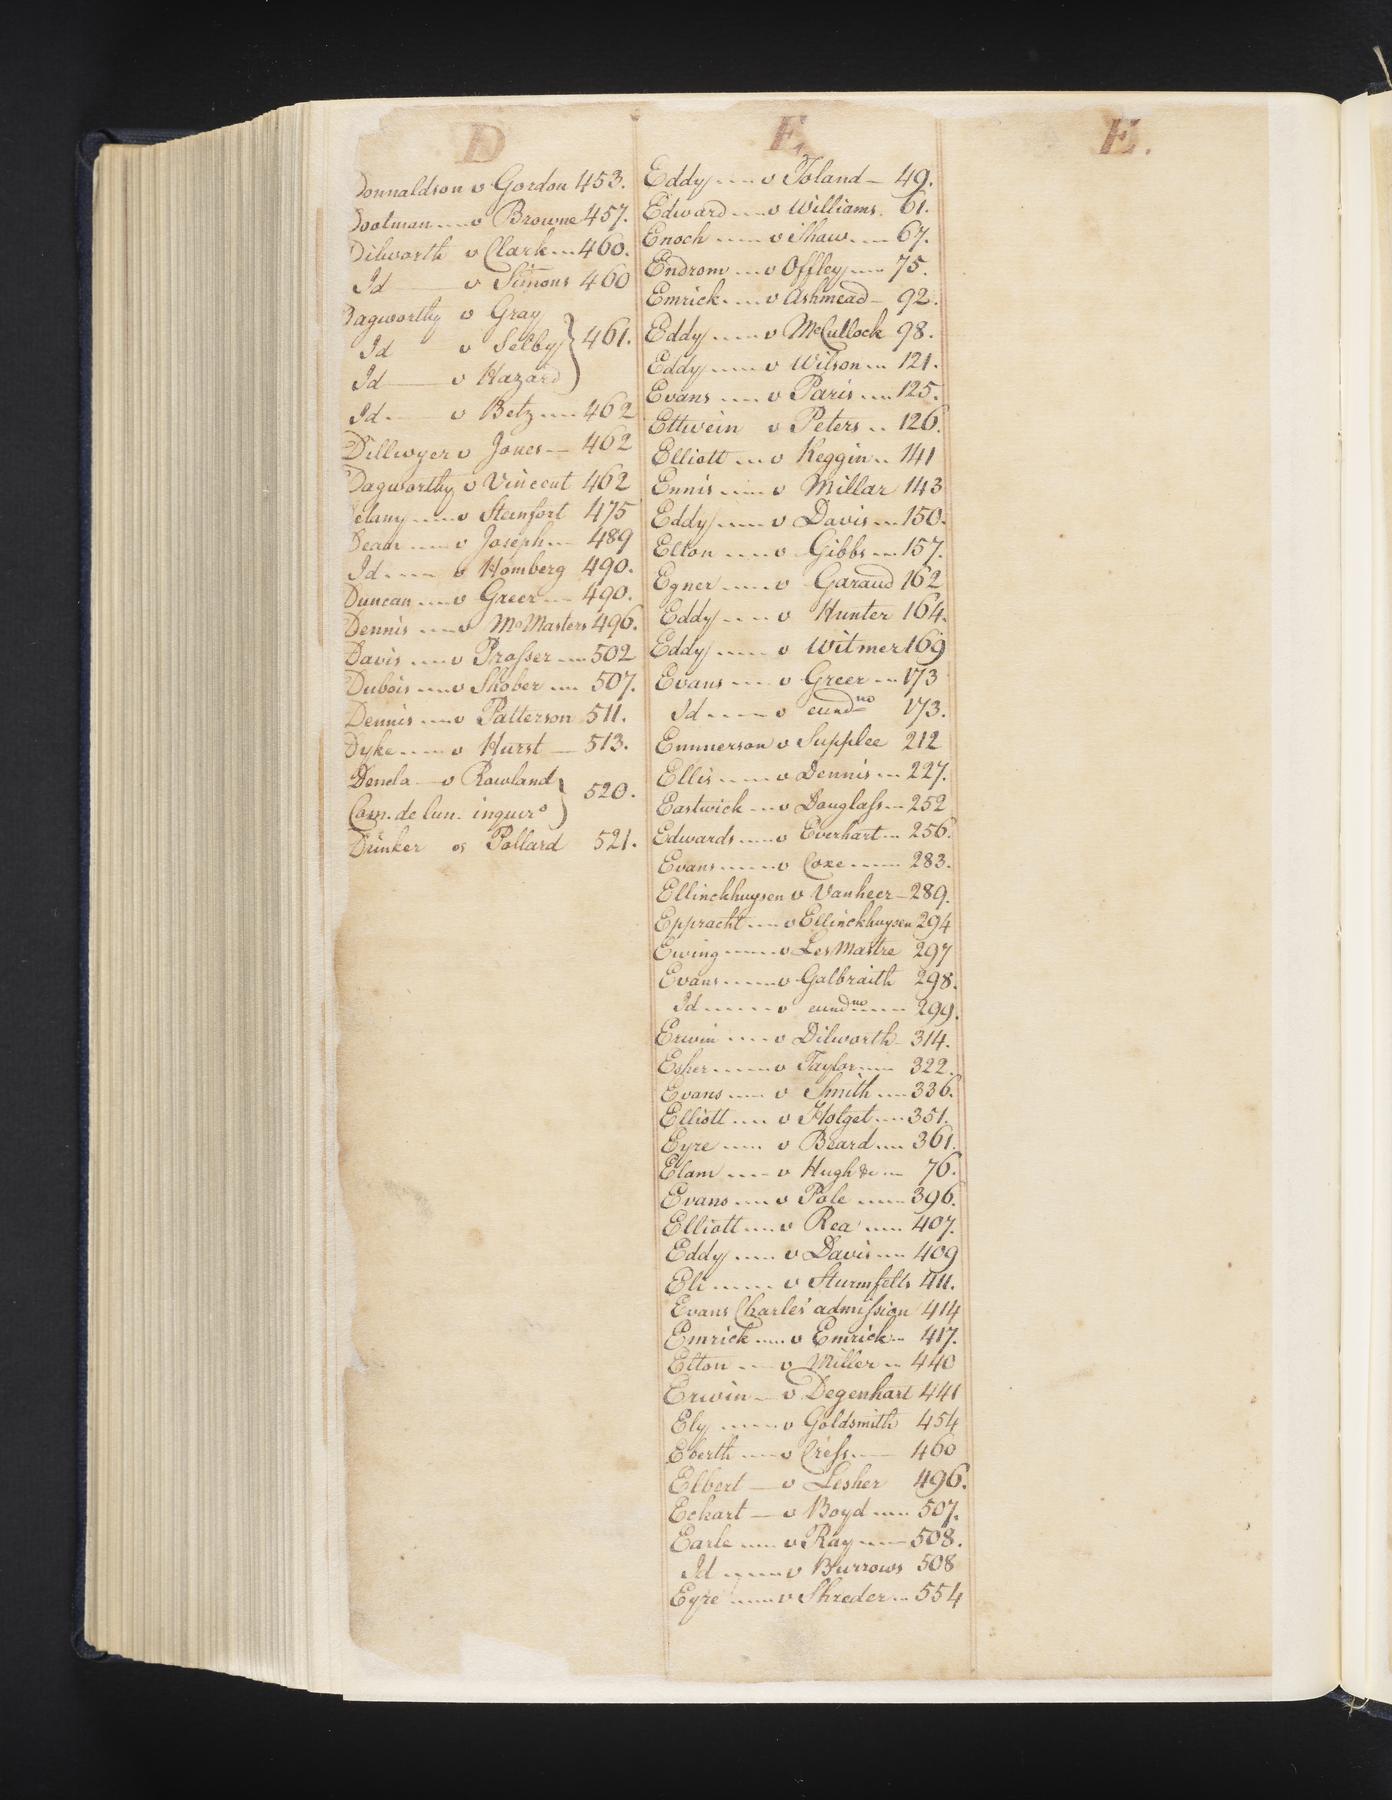 D
Donnaldson v Gordon 453.
Dootman .... v Browne 457.
Dilworth v Clark ... 460.
Id —— v Simons 460
Dagworthy v Gray
Id v Selby } 461.
Id —— v Hazard
Id —— v Betz .... 462
Dillwyer v Jones — 462
Dagworthy v Vincent 462
elany .... v Steinfort 475
Dean .... v Joseph ... 489
Id .... v Homberg 490.
Duncan .... v Greer .... 490.
Dennis .... v McMasters 496.
Davis .... v Prosser .... 502
Dubois .... v Shober .... 507.
Dennis .... v Patterson 511.
Dyke .... v Hurst — 513.
Denela — v Rowland } 520.
Com. de lun. inquer°
Drinker vs Pollard 521.
E,
Eddy .... v Toland — 49.
Edward .... v Williams. 61.
Enoch .... v Shaw .... 67.
Endrom ... v Offley .... 75.
Emrick .... v Ashmead — 92.
Eddy .... v McCullock 98.
Eddy .... v Wilson ... 121.
Evans .... v Paris .... 125.
Ettwein v Peters .. 126.
Elliott ... v Keggin .. 141
Ennis .... v Millar 143
Eddy .... v Davis ... 150.
Elton .... v Gibbs ... 157.
Egner .... v Garaud 162
Eddy .... v Hunter 164.
Eddy .... v Witmer 169
Evans .... v Greer ... 173
Id .... v eund^no 173.
Emmerson v Supplee 212
Ellis .... v Dennis ... 227.
Eastwick ... v Douglass ... 252
Edwards .... v Everhart ... 256.
Evans .... v Coxe .... 283.
Ellinckhuysen v Vanheer — 289.
Eppracht .... v Ellinckhuysen 294
Ewing .... v LesMastre 297
Evans .... v Galbraith 298.
Id .... v eund^no .... 299.
Erwin .... v Dilworth — 314.
Esher .... v Taylor .... 322.
Evans .... v Smith .... 336.
Elliott .... v Hotget .... 351.
Eyre .... v Beard .... 361.
Elam .... v Hugh &c ... 76.
Evans .... v Pole .... 396.
Elliott .... v Rea .... 407.
Eddy .... v Davis .... 409
Eli .... v Sturmfelts 411.
Evans Charles' admission 414
Emrick .... v Emrick .. 417.
Elton .... v Miller .. 440
Erwin — v Degenhart 441
Ely .... v Goldsmith 454
Eberth .... v Cress. — 460
Elbert — v Lesher 496.
Eckart — v Boyd .... 507.
Earle .... v Ray .... 508.
Id .... v Burrows 508
Eyre .... v Shreder ... 554
E.